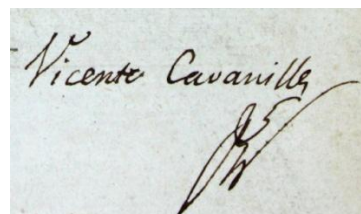 Vicente Cavanilles